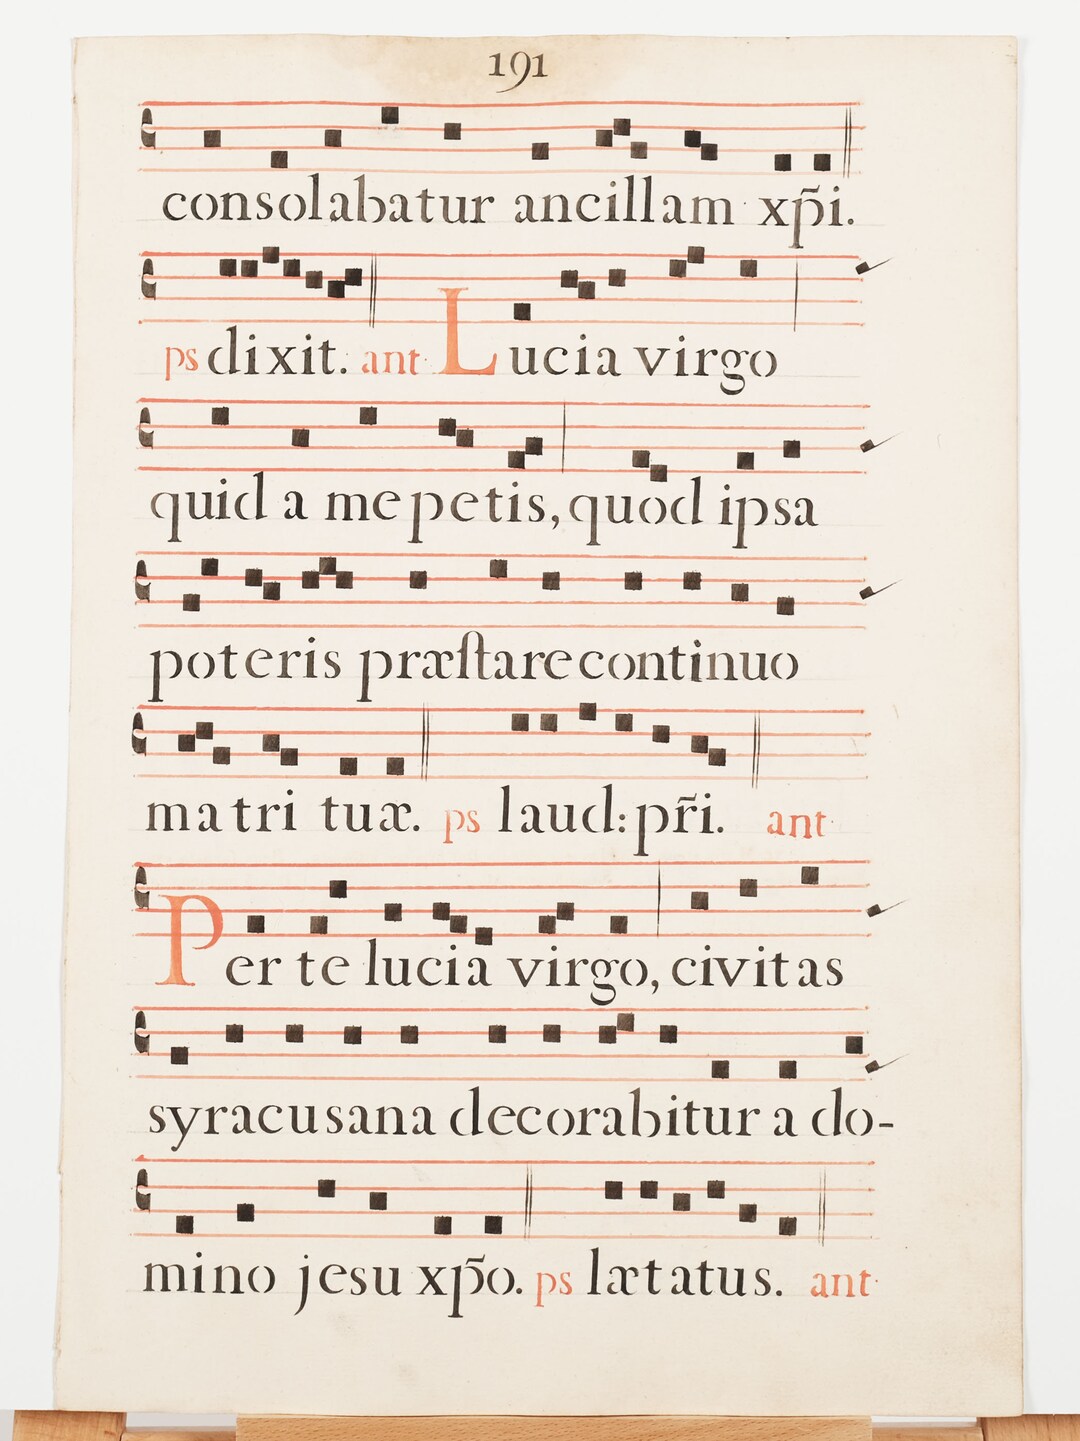 191
consolabatur ancillam xp̃i.
ps dixit. ant Lucia virgo
quid a me petis, quod ipsa
poteris præſtare continuo
matri tuæ. ps laud: pr̃i. ant
Per te lucia virgo, civitas
syracusana decorabitur a do-
mino jesu xp̃o. ps lætatus. ant